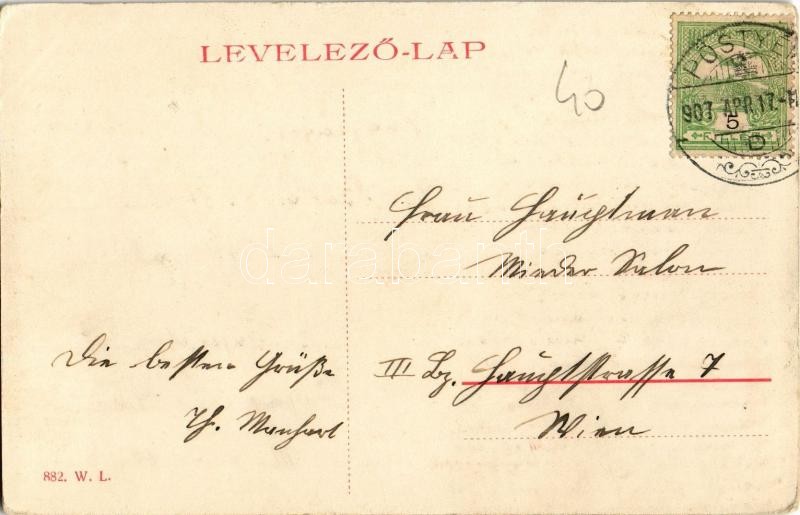 LEVELEZŐ-LAP
40
PÖSTYÉN
907 APR. 17
5
FILLÉR
D
Frau Hauptman
Mieder Salon
Die besten Grüße
III Bz. Hauptstrasse 7
Th. Manhart
Wien
882. W. L.
darabanth